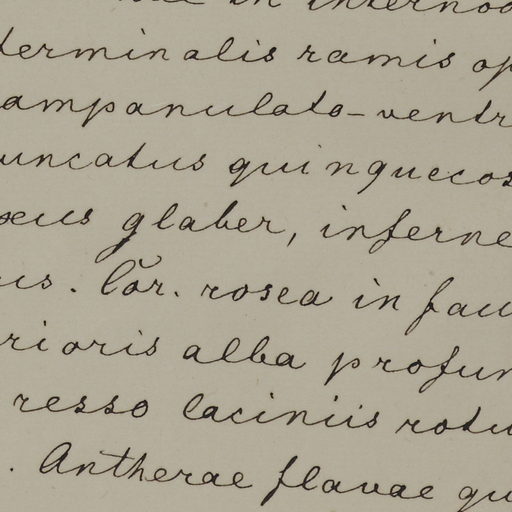 in internod
terminalis ramis op
ampanulato-ventr
uncatus quinquecos
xus glaber, inferne
us. Cŏr. rosea in fau
rioris alba profun
resso laciniis rotu
. Antherae flavae qu